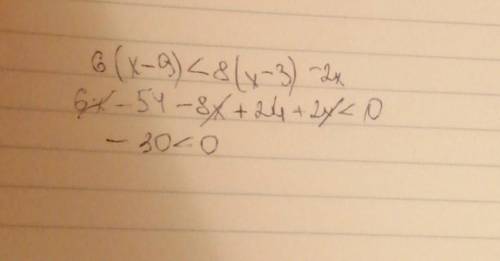 6(x-9)<8(x-3) -2x
6x-54-8x+24+2x<0
-30<0